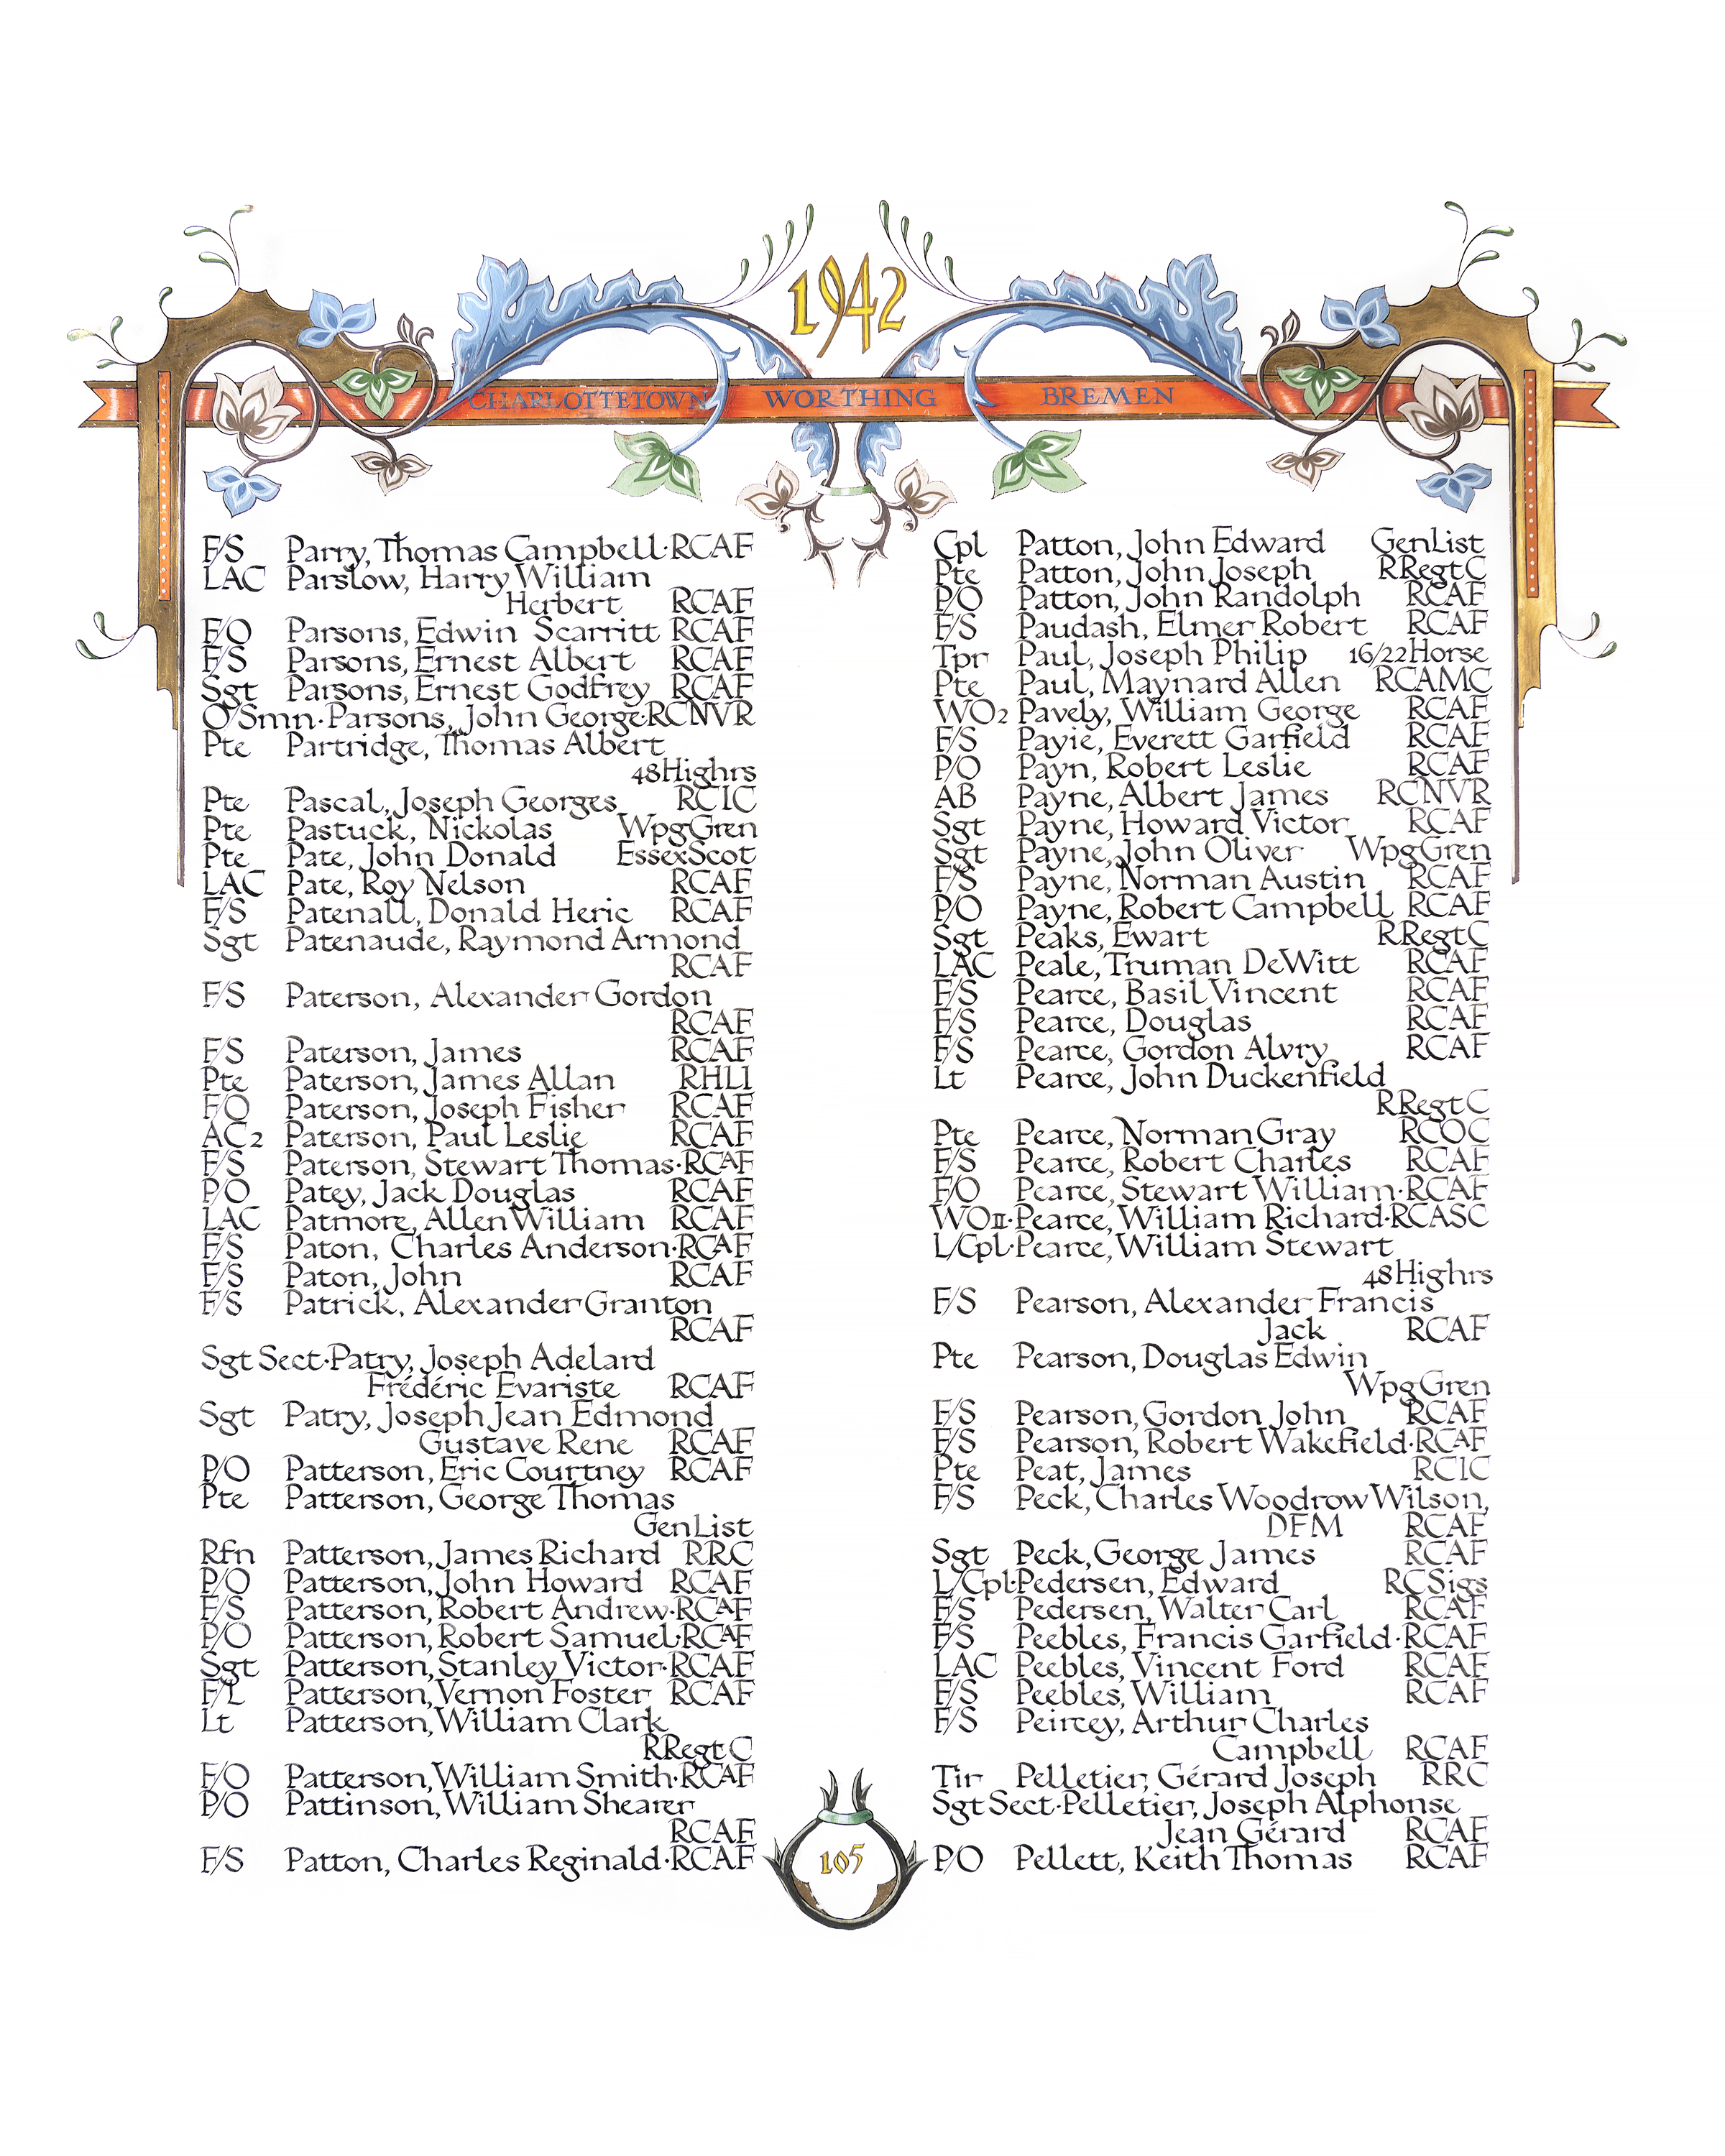 1942
CHARLOTTETOWN WORTHING BREMEN
F/S Parry, Thomas Campbell·RCAF
LAC Parslow, Harry William
Herbert RCAF
F/O Parsons, Edwin Scarritt RCAF
F/S Parsons, Ernest Albert RCAF
Sgt Parsons, Ernest Godfrey RCAF
O/Smn·Parsons, John George·RCNVR
Pte Partridge, Thomas Albert
48Highrs
Pte Pascal, Joseph Georges RCIC
Pte Pastuck, Nickolas WpgGren
Pte Pate, John Donald EssexScot
LAC Pate, Roy Nelson RCAF
F/S Patenall, Donald Heric RCAF
Sgt Patenaude, Raymond Armond
RCAF
F/S Paterson, Alexander Gordon
RCAF
F/S Paterson, James RCAF
Pte Paterson, James Allan RHLI
F/O Paterson, Joseph Fisher RCAF
AC2 Paterson, Paul Leslie RCAF
F/S Paterson, Stewart Thomas·RCAF
P/O Patey, Jack Douglas RCAF
LAC Patmore, Allen William RCAF
F/S Paton, Charles Anderson·RCAF
F/S Paton, John RCAF
F/S Patrick, Alexander Granton
RCAF
Sgt Sect·Patry, Joseph Adelard
Frédéric Evariste RCAF
Sgt Patry, Joseph Jean Edmond
Gustave Rene RCAF
P/O Patterson, Eric Courtney RCAF
Pte Patterson, George Thomas
GenList
Rfn Patterson, James Richard RRC
P/O Patterson, John Howard RCAF
F/S Patterson, Robert Andrew·RCAF
P/O Patterson, Robert Samuel·RCAF
Sgt Patterson, Stanley Victor·RCAF
F/L Patterson, Vernon Foster RCAF
Lt Patterson, William Clark
RRegtC
F/O Patterson, William Smith·RCAF
P/O Pattinson, William Shearer
RCAF
F/S Patton, Charles Reginald·RCAF
Cpl Patton, John Edward GenList
Pte Patton, John Joseph RRegtC
P/O Patton, John Randolph RCAF
F/S Paudash, Elmer Robert RCAF
Tpr Paul, Joseph Philip 16/22Horse
Pte Paul, Maynard Allen RCAMC
WO2 Pavely, William George RCAF
F/S Payie, Everett Garfield RCAF
P/O Payn, Robert Leslie RCAF
AB Payne, Albert James RCNVR
Sgt Payne, Howard Victor RCAF
Sgt Payne, John Oliver WpgGren
F/S Payne, Norman Austin RCAF
P/O Payne, Robert Campbell RCAF
Sgt Peaks, Ewart RRegtC
LAC Peale, Truman DeWitt RCAF
F/S Pearce, Basil Vincent RCAF
F/S Pearce, Douglas RCAF
F/S Pearce, Gordon Alvry RCAF
Lt Pearce, John Duckenfield
RRegtC
Pte Pearce, Norman Gray RCOC
F/S Pearce, Robert Charles RCAF
F/O Pearce, Stewart William·RCAF
WOII·Pearce, William Richard·RCASC
L/Cpl·Pearce, William Stewart
48Highrs
F/S Pearson, Alexander Francis
Jack RCAF
Pte Pearson, Douglas Edwin
WpgGren
F/S Pearson, Gordon John RCAF
F/S Pearson, Robert Wakefield·RCAF
Pte Peat, James RCIC
F/S Peck, Charles Woodrow Wilson,
DFM RCAF
Sgt Peck, George James RCAF
L/Cpl·Pedersen, Edward RCSigs
F/S Pedersen, Walter Carl RCAF
F/S Peebles, Francis Garfield·RCAF
LAC Peebles, Vincent Ford RCAF
F/S Peebles, William RCAF
F/S Peircey, Arthur Charles
Campbell RCAF
Tir Pelletier, Gérard Joseph RRC
Sgt Sect·Pelletier, Joseph Alphonse
Jean Gérard RCAF
P/O Pellett, Keith Thomas RCAF
105